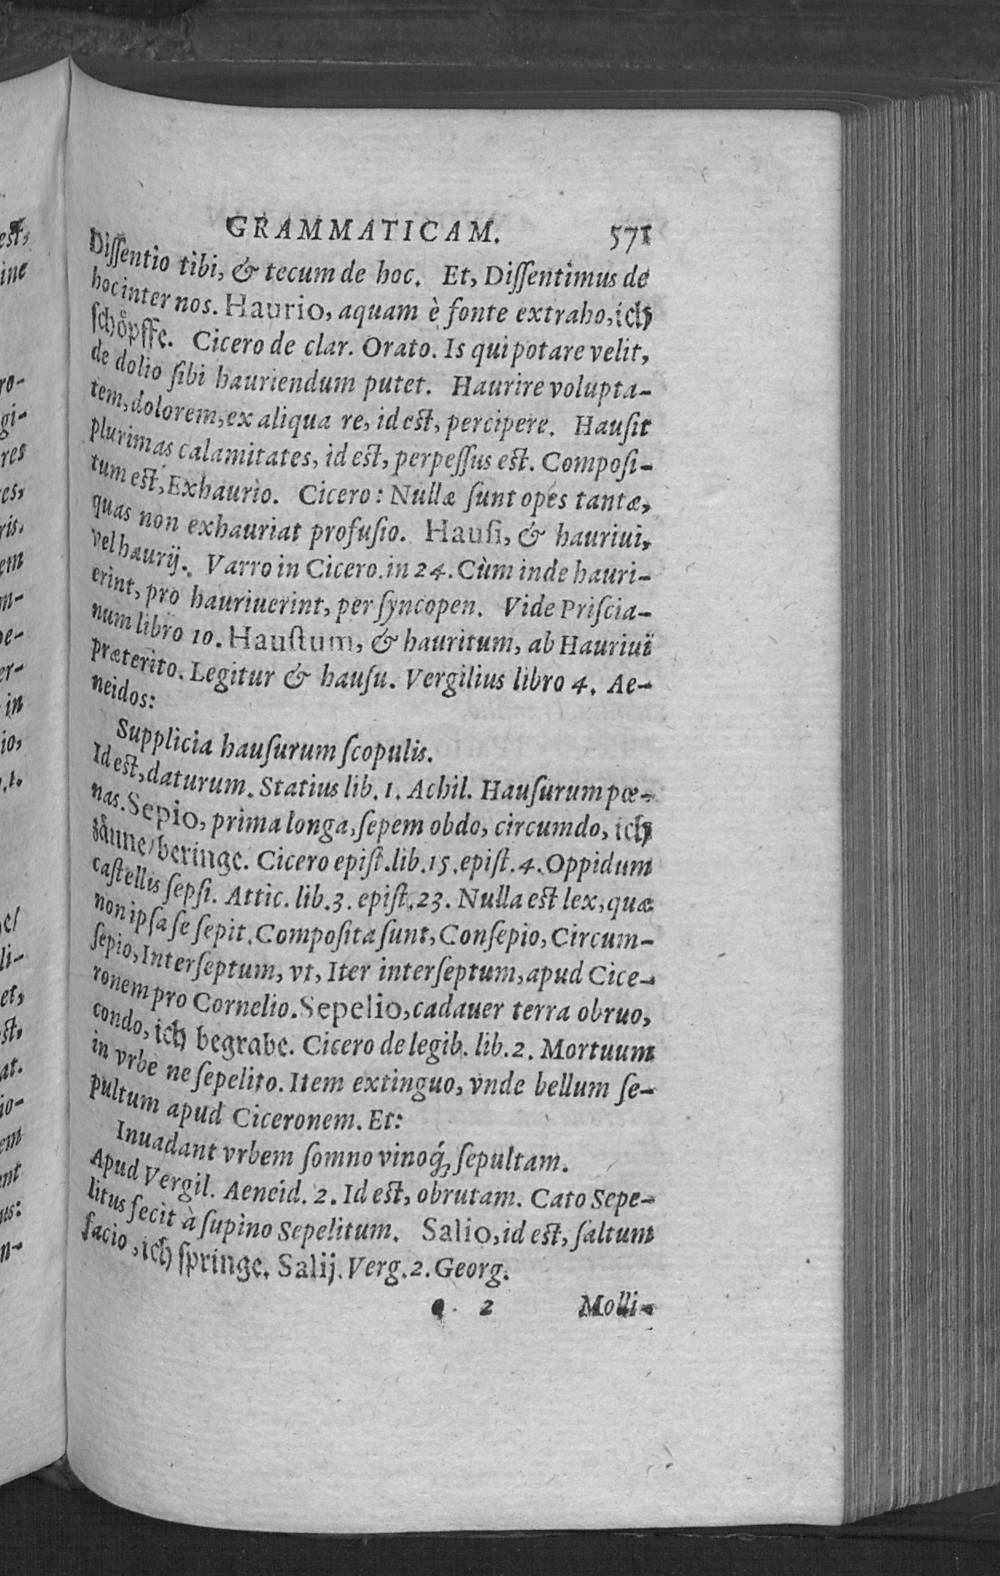 GRAMMATICAM. 571
Diſſentio tibi, & tecum de hoc. Et, Diſſentimus de
hoc inter nos. Haurio, aquam è fonte extraho, ich
ſchoͤpffe. Cicero de clar. Orato. Is qui potare velit,
de dolio ſibi hauriendum putet. Haurire volupta-
tem, dolorem, ex aliqua re, id eſt, percipere. Hauſit
plurimas calamitates, id eſt, perpeſſus eſt. Compoſi-
tum eſt, Exhaurio. Cicero: Nullæ ſunt opes tantæ,
quas non exhauriat profuſio. Hauſi, & hauriui,
vel haurij. Varro in Cicero. in 24. Cùm inde hauri-
erint, pro hauriuerint, per ſyncopen. Vide Priſcia-
num libro 10. Hauſtum, & hauritum, ab Hauriui
præterito. Legitur & hauſu. Vergilius libro 4. Ae-
neidos:
Supplicia hauſurum ſcopulis.
Id eſt, daturum. Statius lib. 1. Achil. Hauſurum pœ-
nas. Sepio, prima longa, ſepem obdo, circumdo, ich
zaͤune/ beringe. Cicero epiſt. lib. 15. epiſt. 4. Oppidum
caſtellis ſepſi. Attic. lib. 3. epiſt. 23. Nulla eſt lex, quæ
non ipſa ſe ſepit. Compoſita ſunt, Conſepio, Circum-
ſepio, Interſeptum, vt, Iter interſeptum, apud Cice-
ronem pro Cornelio. Sepelio, cadauer terra obruo,
condo, ich begrabe. Cicero de legib. lib. 2. Mortuum
in vrbe ne ſepelito. Item extinguo, vnde bellum ſe-
pultum apud Ciceronem. Et:
Inuadant vrbem ſomno vinoq́; ſepultam.
Apud Vergil. Aeneid. 2. Id eſt, obrutam. Cato Sepe-
litus fecit à ſupino Sepelitum. Salio, id eſt, ſaltum
facio, ich ſpringe. Salij. Verg. 2. Georg.
2 Molli-